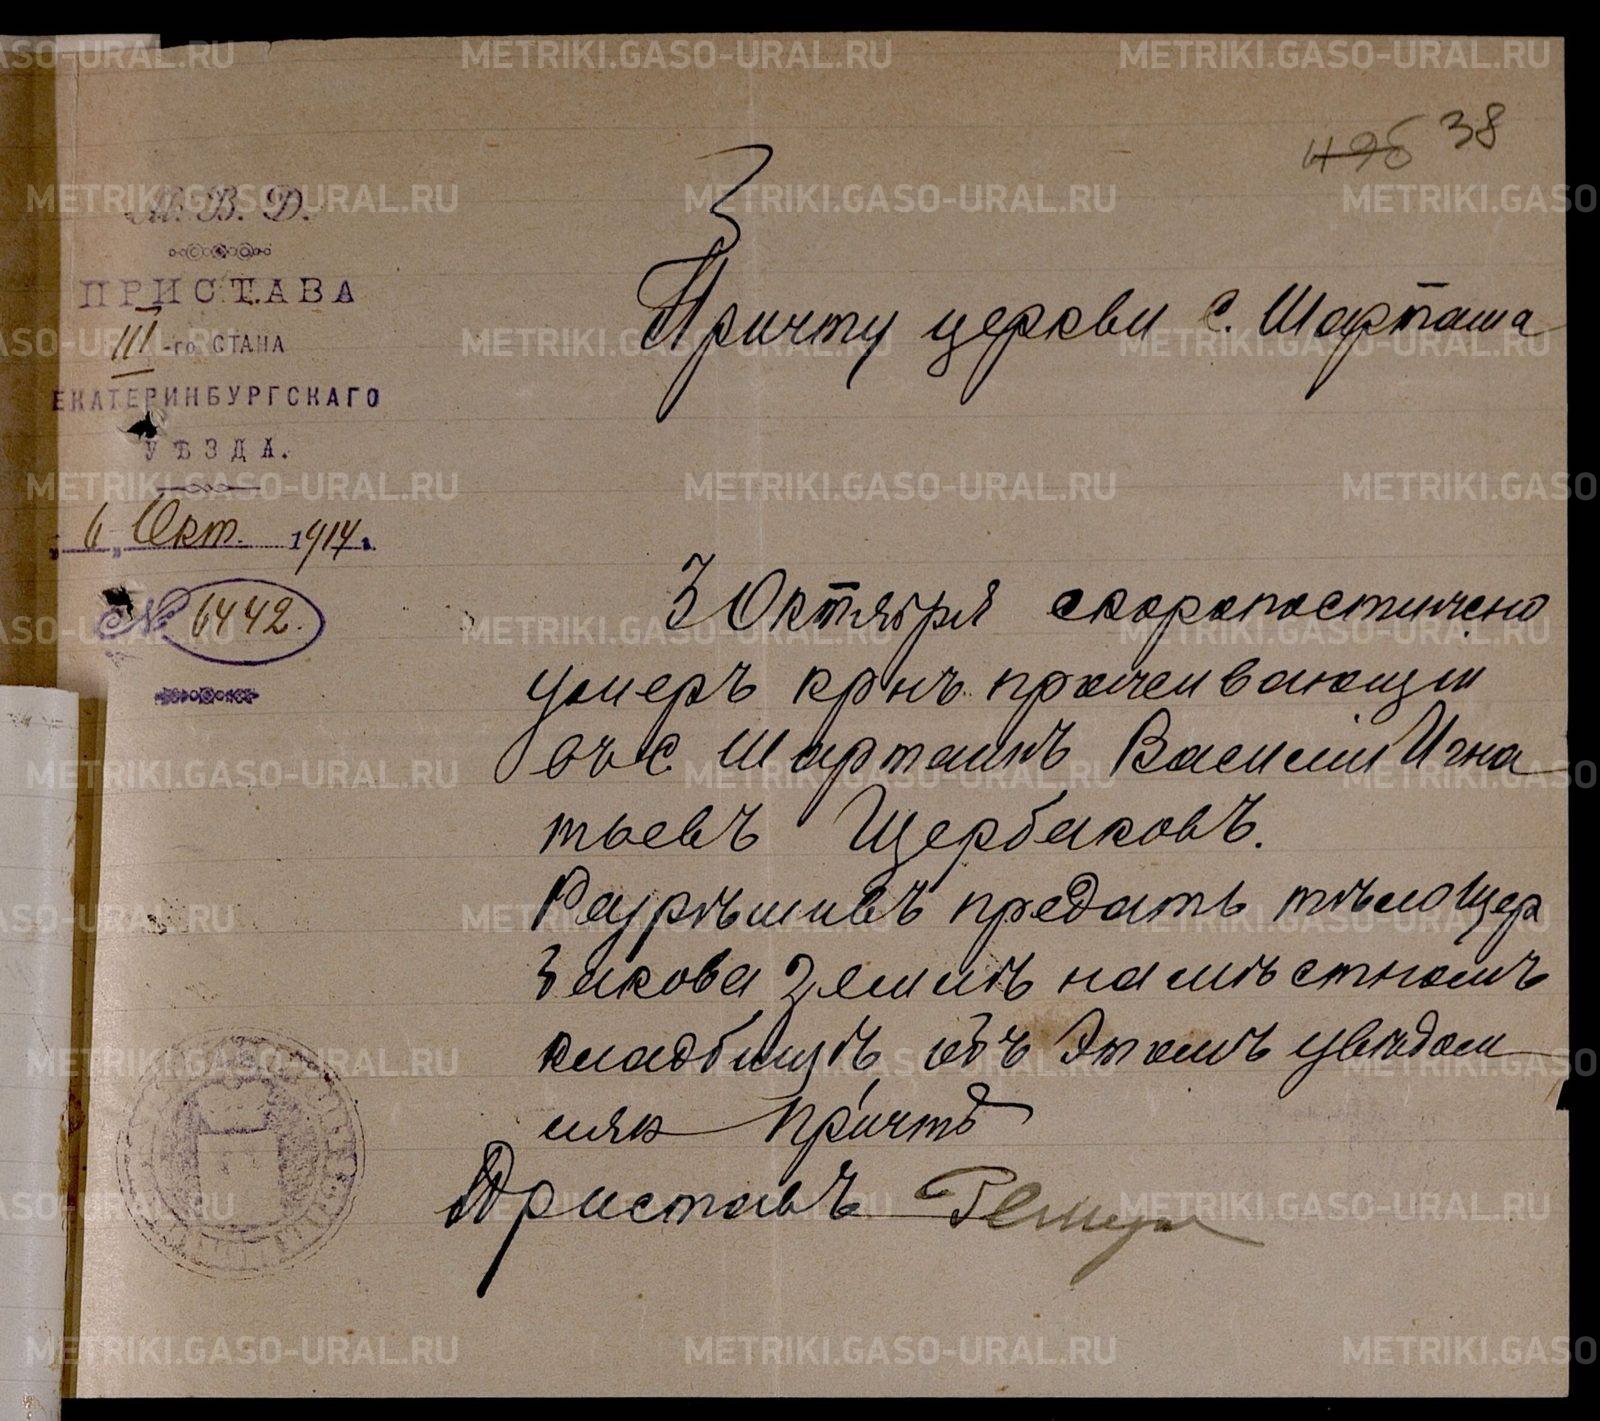 496 38
3
М. В. Д.
ПРИСТАВА
III-го СТАНА
ЕКАТЕРИНБУРГСКАГО
УѢЗДА.
„6„ Окт. 1914.
№ 6442.
Причту церкви с. Шарташа
3 Октября скоропостижно
умеръ крнъ проживающiи
въ с. Шарташѣ Василiи Игна
тьевъ Щербаковъ.
Разрѣшивъ предать тѣло Щер
бакова землѣ на мѣстномъ
кладбищѣ объ этомъ увѣдом
ляю причтъ
Приставъ
METRIKI.GASO-URAL.RU